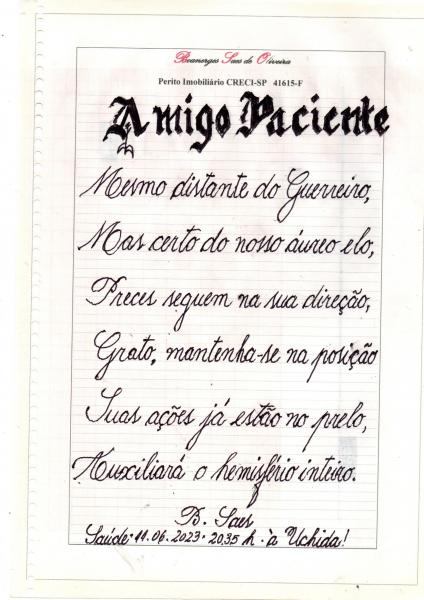 Boanerges Saes de Oliveira
Perito Imobiliário CRECI-SP 41615-F
Amigo Paciente
Mesmo distante do Guerreiro,
Mas certo do nosso áureo elo,
Preces seguem na sua direção,
Grato, mantenha-se na posição
Suas ações já estão no prelo,
Auxiliará o hemisfério inteiro.
B. Saes
Saúde. 11.06.2023. 20,35 h. à Uchida!